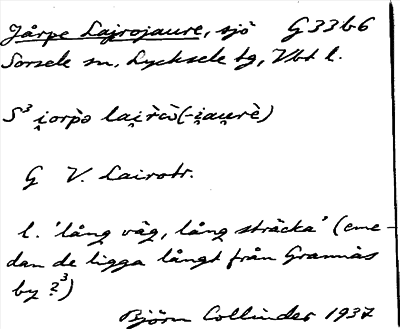 Jårpe Lajrojaure, sjö G33b6
Sorsele sn, Lycksele tg, Vbt l.
S³ i̯orpə lai̯rὼ(-i̯au̯rè)
G V. Lairotr.
l. 'lång väg, lång sträcka' (eme-
dan de ligga långt från Grannäs
by ?³)
Björn Collinder 1937